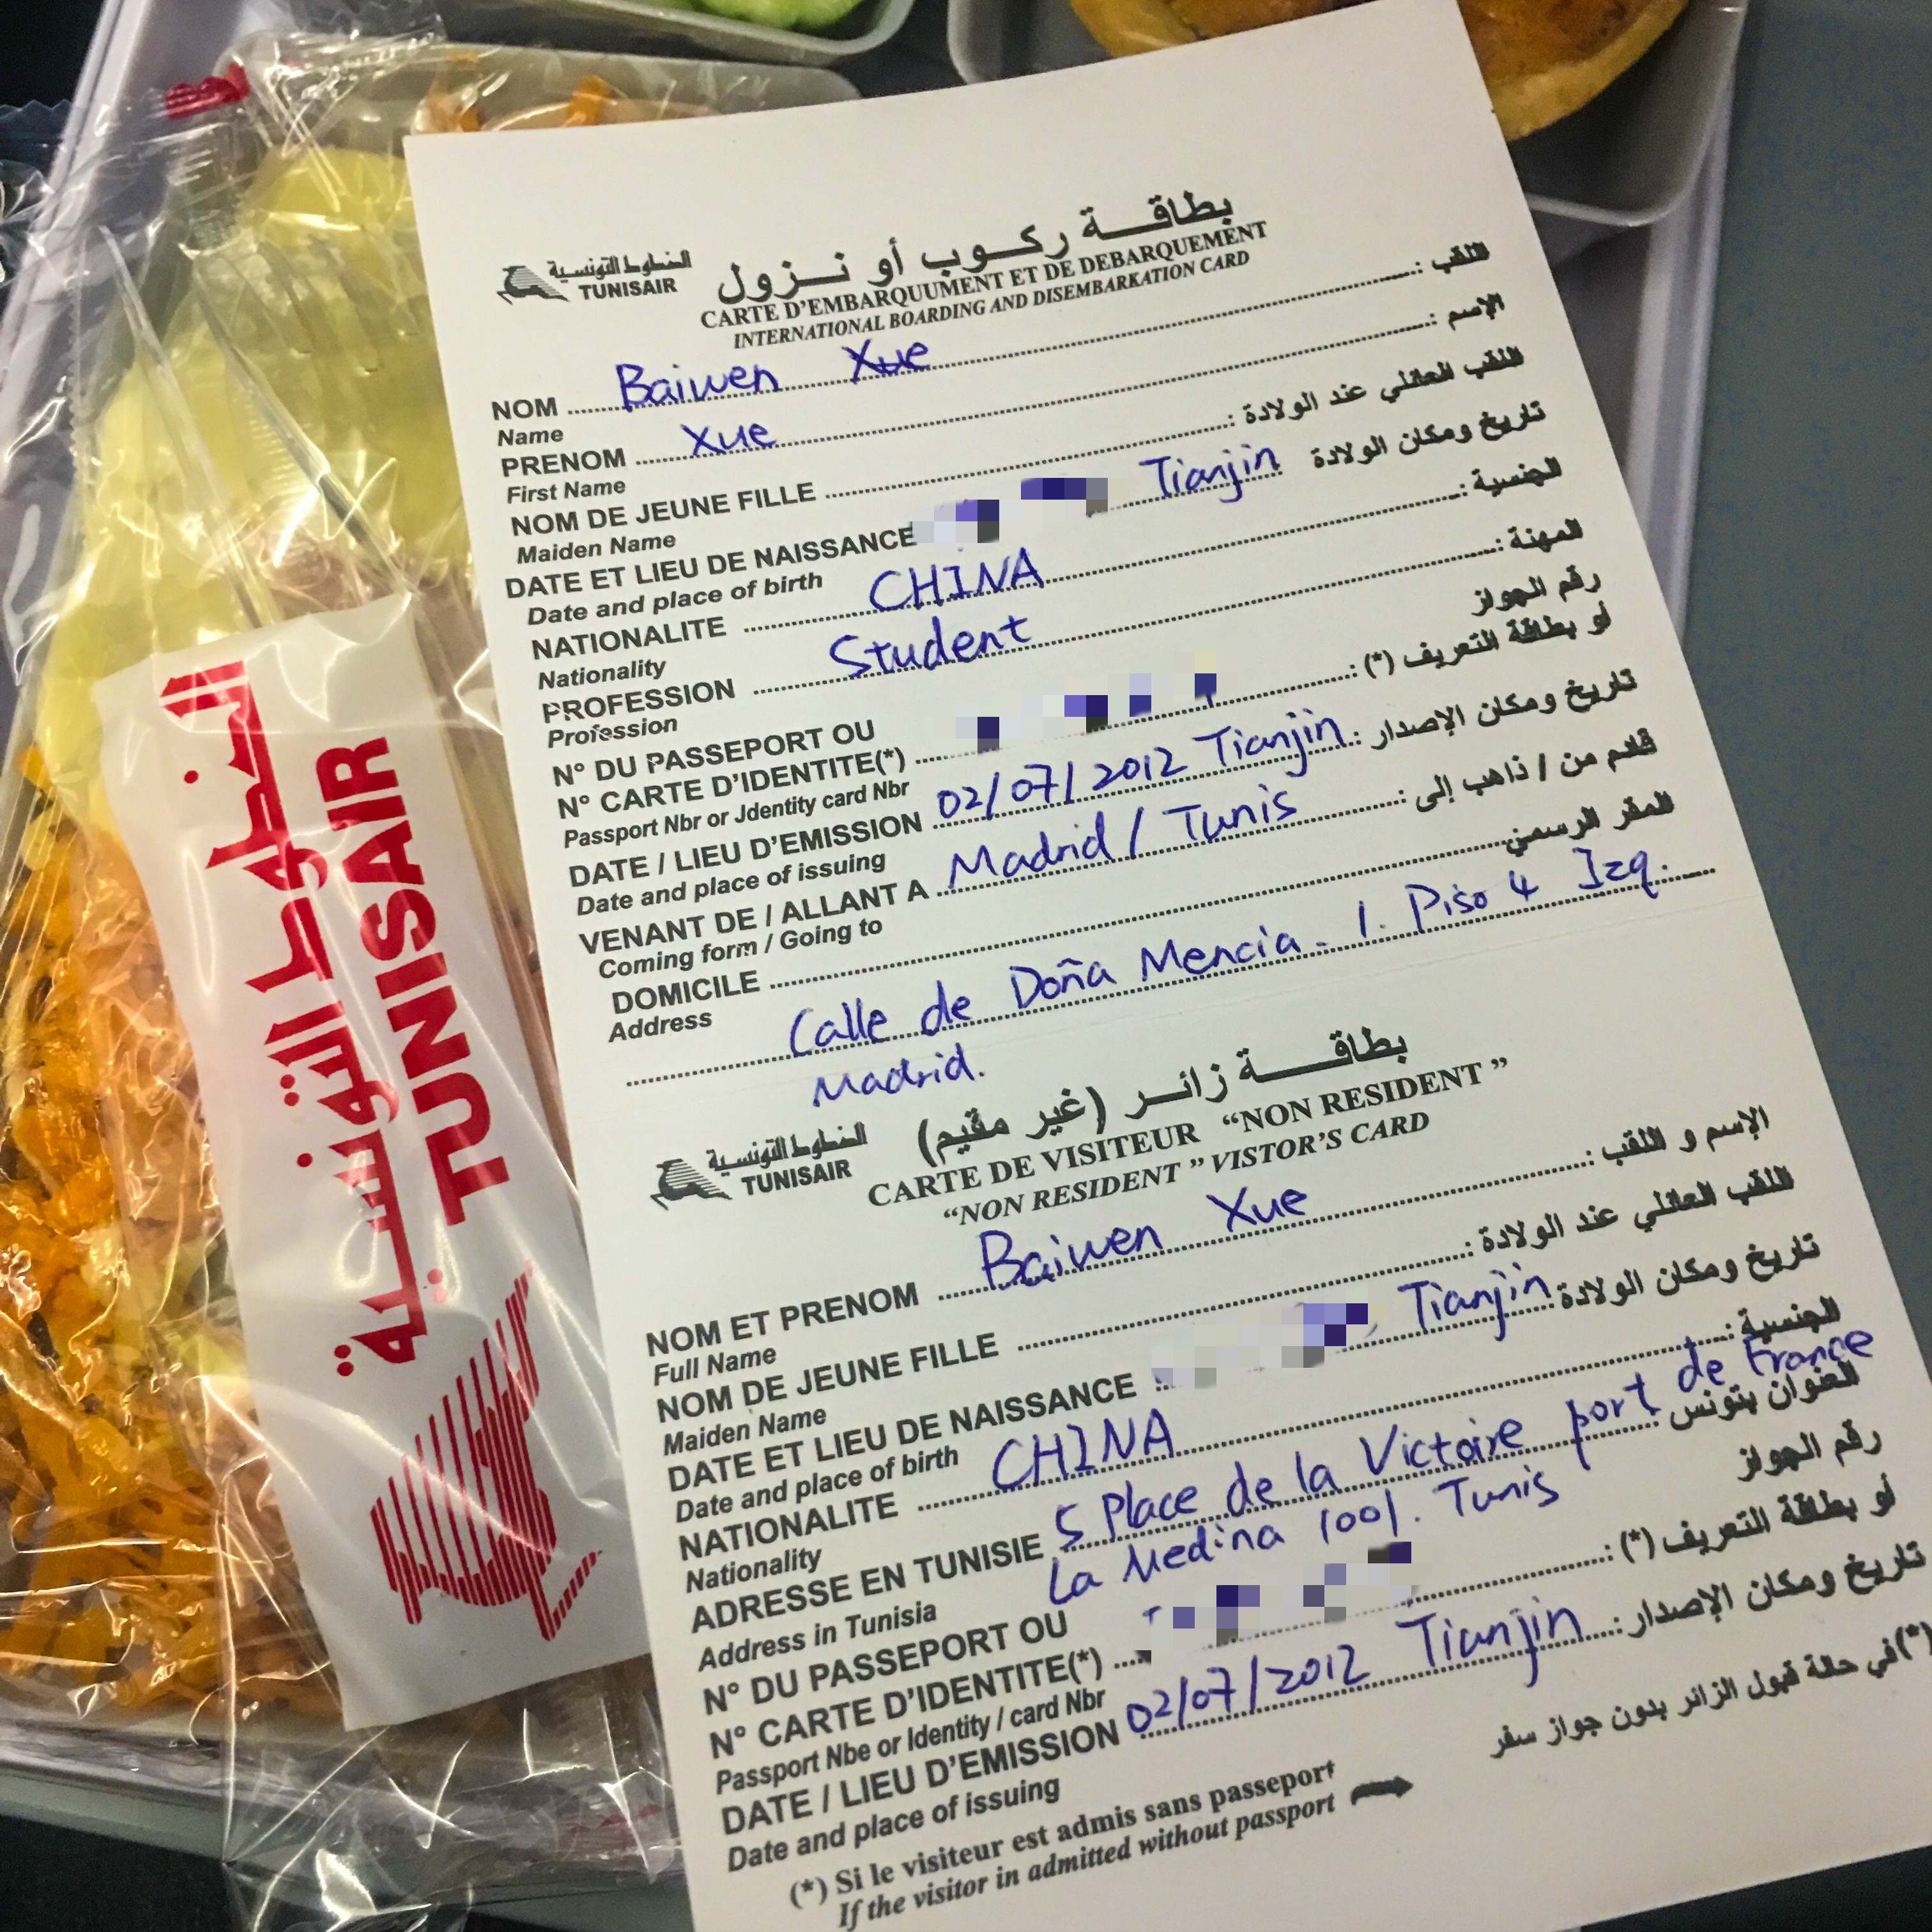 الخطوط التونسية
TUNISAIR
بطاقة ركوب أو نزول
CARTE D'EMBARQUUMENT ET DE DEBARQUEMENT
INTERNATIONAL BOARDING AND DISEMBARKATION CARD
NOM Baiwen Xue اللقب :
Name
PRENOM Xue الإسم :
First Name
NOM DE JEUNE FILLE اللقب العائلي عند الولادة :
Maiden Name
DATE ET LIEU DE NAISSANCE Tianjin تاريخ ومكان الولادة
Date and place of birth
NATIONALITE CHINA الجنسية :
Nationality
PROFESSION Student المهنة :
Profession
N° DU PASSEPORT OU رقم الجواز
N° CARTE D'IDENTITE(*) أو بطاقة التعريف (*) :
Passport Nbr or Jdentity card Nbr
DATE / LIEU D'EMISSION 02/07/2012 Tianjin تاريخ ومكان الإصدار :
Date and place of issuing
VENANT DE / ALLANT A Madrid / Tunis قادم من / ذاهب إلى :
Coming form / Going to
DOMICILE المقر الرسمي
Address
Calle de Doña Mencia - 1. Piso 4 Izq.
Madrid.
الخطوط التونسية
TUNISAIR
بطاقة زائر (غير مقيم)
CARTE DE VISITEUR “NON RESIDENT ”
“NON RESIDENT ” VISTOR'S CARD
NOM ET PRENOM Baiwen Xue الإسم و اللقب :
Full Name
NOM DE JEUNE FILLE اللقب العائلي عند الولادة :
Maiden Name
DATE ET LIEU DE NAISSANCE Tianjin تاريخ ومكان الولادة
Date and place of birth
NATIONALITE CHINA الجنسية :
Nationality
ADRESSE EN TUNISIE 5 Place de la Victoire port de France العنوان بتونس
Address in Tunisia La Medina 1001. Tunis
N° DU PASSEPORT OU رقم الجواز
N° CARTE D'IDENTITE(*) أو بطاقة التعريف (*) :
Passport Nbe or Identity / card Nbr
DATE / LIEU D'EMISSION 02/07/2012 Tianjin تاريخ ومكان الإصدار :
Date and place of issuing
(*) Si le visiteur est admis sans passeport (*)في حالة قبول الزائر بدون جواز سفر
If the visitor in admitted without passport
الخطوط التونسية
TUNISAIR